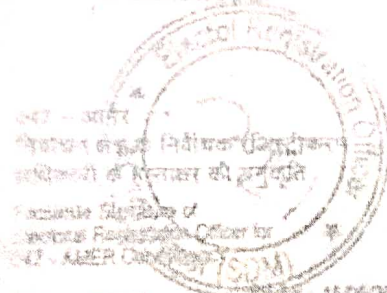 Electoral Registration Officer
047 - आमेर
निर्वाचन क्षेत्र के निर्वाचक रजिस्ट्रीकरण
अधिकारी के हस्ताक्षर की अनुकृति
Facsimile Signature of
Electoral Registration Officer for
047 - AMER
(SDM)